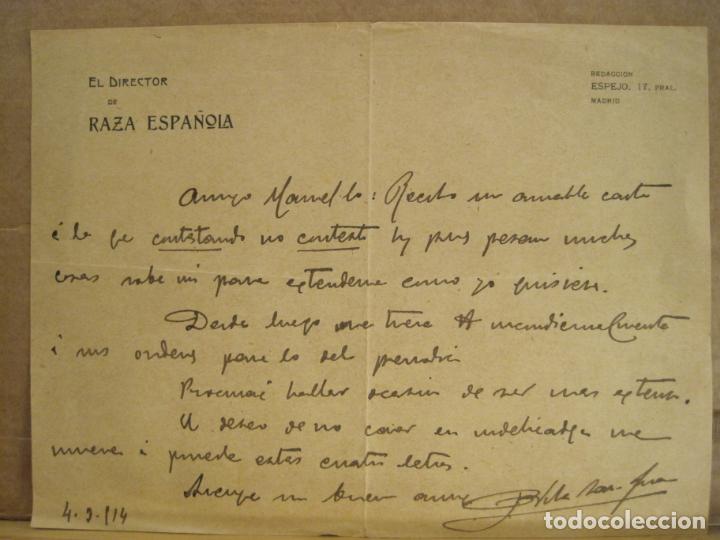 EL DIRECTOR
DE
RAZA ESPAÑOLA
REDACCION
ESPEJO, 17, PRAL.
MADRID
Amigo : Recibo su amable carta
á la qe contestando no contesto hoy pues pesan muchas
cosas sobre mi para extenderme como yo quisiera.
Desde luego me tiene V
á sus ordenes para lo del
Procuraré hallar ocasion de ser mas extenso.
El deseo de no caer en me
mueve á estas cuatro letras.
un buen amigo
4-9-914
todocoleccion
todocoleccion.net